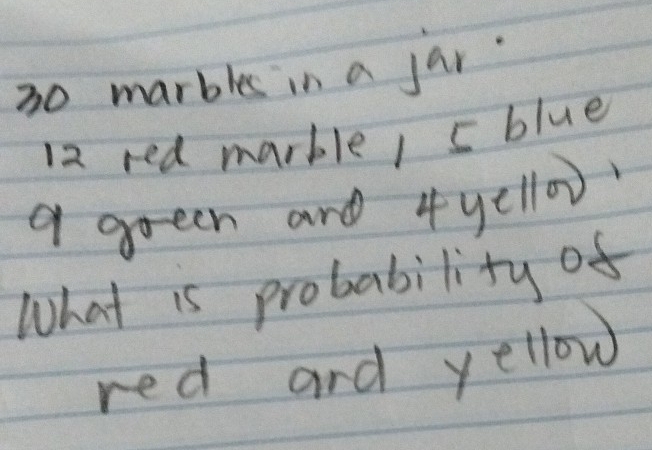 30 marbles in a jar.
12 red marble, 5 blue
9 green and 4 yellow.
What is probability of
red and yellow